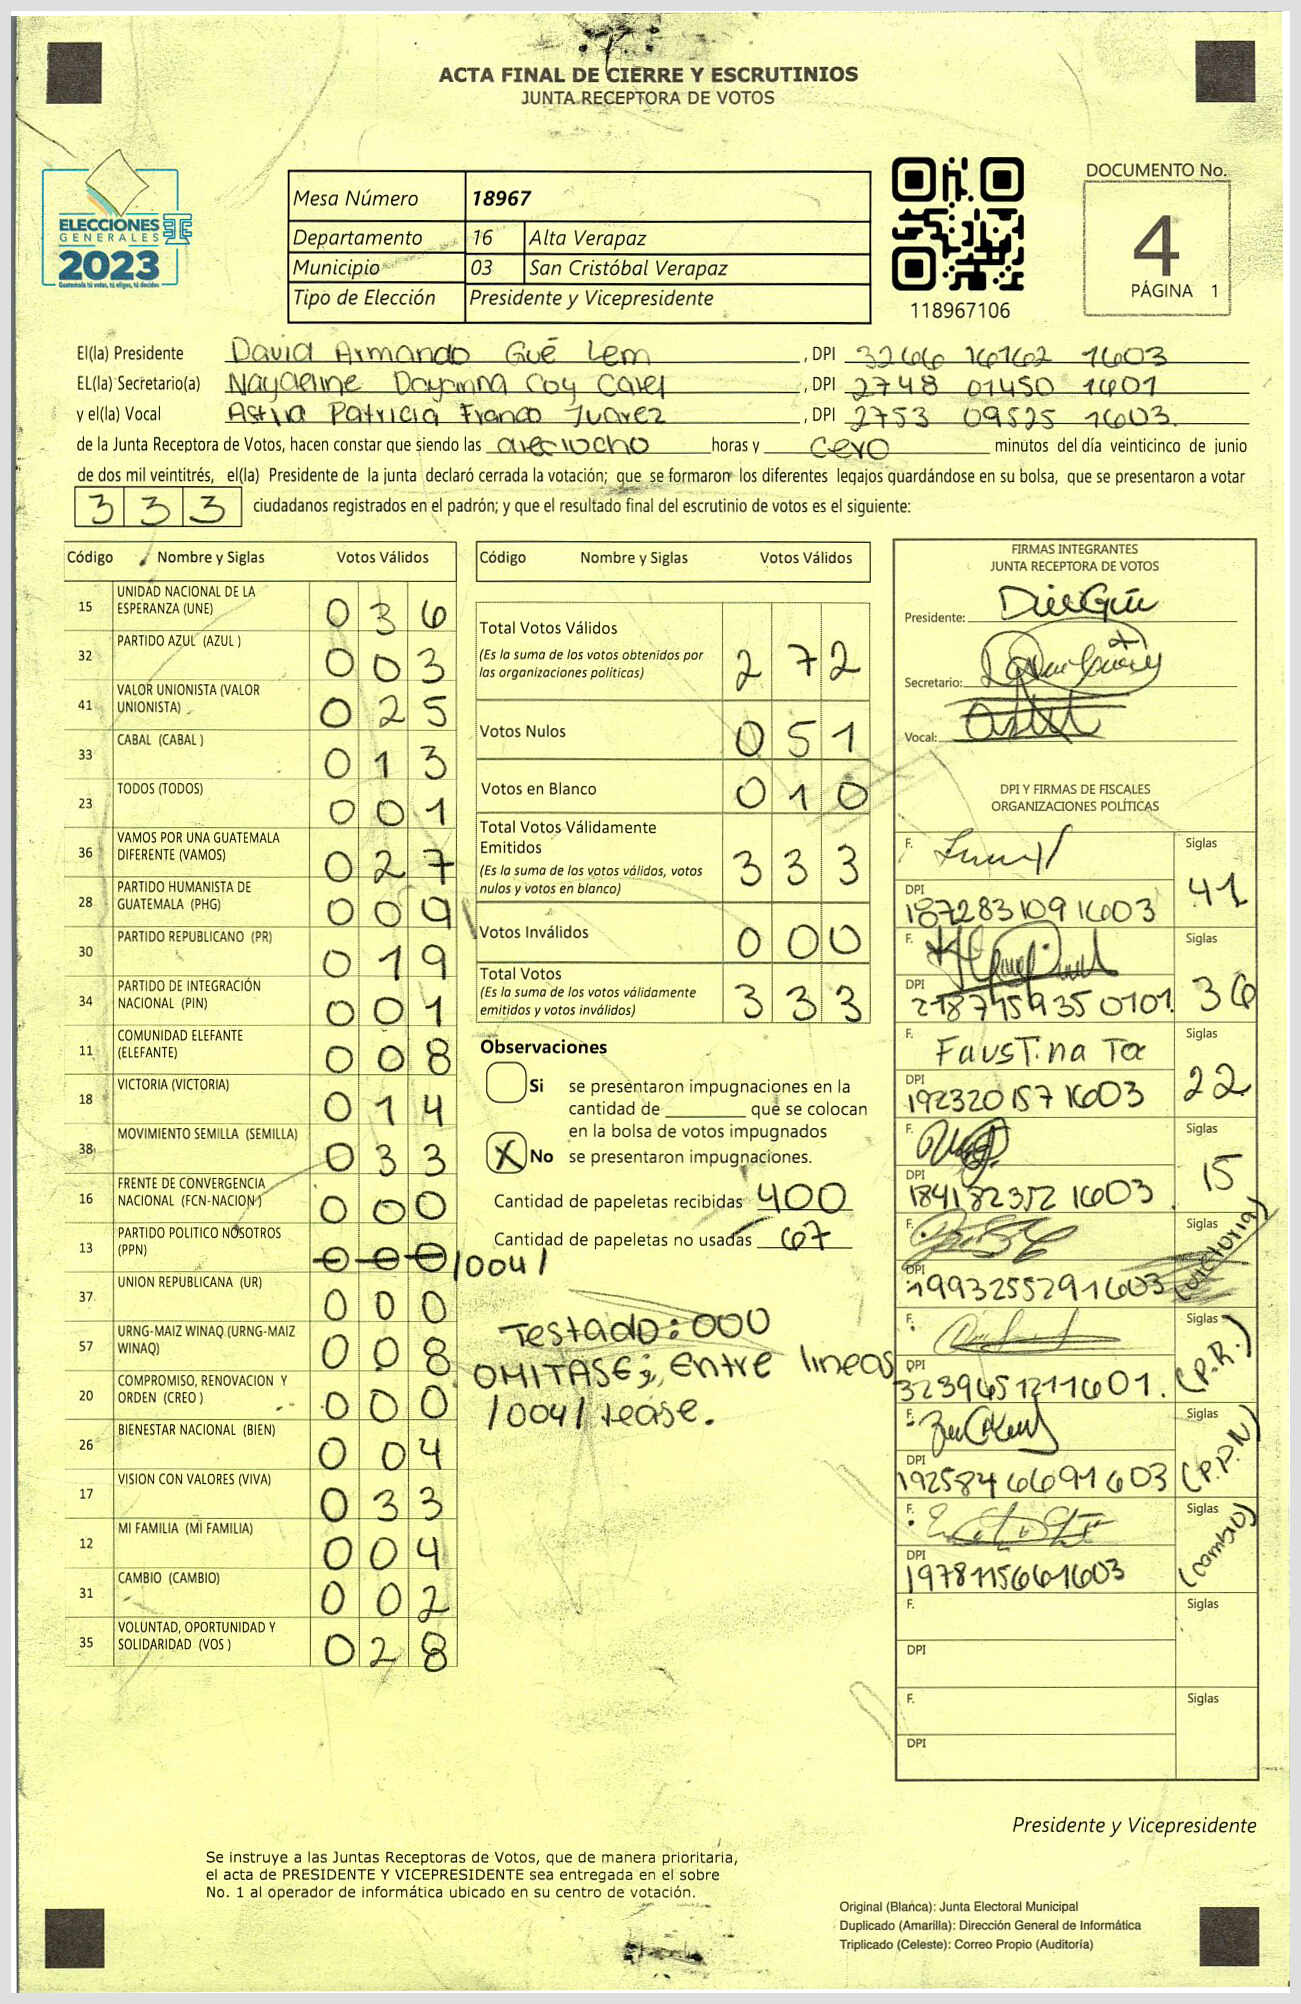 ACTA FINAL DE CIERRE Y ESCRUTINIOS
JUNTA RECEPTORA DE VOTOS
ELECCIONES
GENERALES
2023
Guatemala tú votas, tú eliges, tú decides
Mesa Número 18967
Departamento 16 Alta Verapaz
Municipio 03 San Cristóbal Verapaz
Tipo de Elección Presidente y Vicepresidente
118967106
DOCUMENTO No.
4
PÁGINA 1
El(la) Presidente David Armando Gué Lem, DPI 3266 16162 1603
EL(la) Secretario(a) Naydeline Dayanna Coy Caref, DPI 2748 01450 1601
y el(la) Vocal Astrid Patricia Franco Juarez, DPI 2753 09525 1603.
de la Junta Receptora de Votos, hacen constar que siendo las dieciocho horas y cero minutos del día veinticinco de junio
de dos mil veintitrés, el(la) Presidente de la junta declaró cerrada la votación; que se formaron los diferentes legajos guardándose en su bolsa, que se presentaron a votar
333 ciudadanos registrados en el padrón; y que el resultado final del escrutinio de votos es el siguiente:
Código Nombre y Siglas Votos Válidos
15 UNIDAD NACIONAL DE LA ESPERANZA (UNE) 036
32 PARTIDO AZUL (AZUL ) 003
41 VALOR UNIONISTA (VALOR UNIONISTA) 025
33 CABAL (CABAL ) 013
23 TODOS (TODOS) 001
36 VAMOS POR UNA GUATEMALA DIFERENTE (VAMOS) 027
28 PARTIDO HUMANISTA DE GUATEMALA (PHG) 009
30 PARTIDO REPUBLICANO (PR) 019
34 PARTIDO DE INTEGRACIÓN NACIONAL (PIN) 001
11 COMUNIDAD ELEFANTE (ELEFANTE) 008
18 VICTORIA (VICTORIA) 014
38 MOVIMIENTO SEMILLA (SEMILLA) 033
16 FRENTE DE CONVERGENCIA NACIONAL (FCN-NACION ) 000
13 PARTIDO POLITICO NOSOTROS (PPN) 000 /004/
37 UNION REPUBLICANA (UR) 000
57 URNG-MAIZ WINAQ (URNG-MAIZ WINAQ) 008
20 COMPROMISO, RENOVACION Y ORDEN (CREO ) 000
26 BIENESTAR NACIONAL (BIEN) 004
17 VISION CON VALORES (VIVA) 033
12 MI FAMILIA (MI FAMILIA) 004
31 CAMBIO (CAMBIO) 002
35 VOLUNTAD, OPORTUNIDAD Y SOLIDARIDAD (VOS ) 028
Código Nombre y Siglas Votos Válidos
Total Votos Válidos 272
(Es la suma de los votos obtenidos por
las organizaciones políticas)
Votos Nulos 051
Votos en Blanco 010
Total Votos Válidamente
Emitidos 333
(Es la suma de los votos válidos, votos
nulos y votos en blanco)
Votos Inválidos 000
Total Votos 333
(Es la suma de los votos válidamente
emitidos y votos inválidos)
Observaciones
Si se presentaron impugnaciones en la
cantidad de ________ que se colocan
en la bolsa de votos impugnados
X No se presentaron impugnaciones.
Cantidad de papeletas recibidas 400
Cantidad de papeletas no usadas 67
Testado: 000
OMITASE; Entre lineas
/004/ Lease.
FIRMAS INTEGRANTES
JUNTA RECEPTORA DE VOTOS
Presidente:
Secretario:
Vocal:
DPI Y FIRMAS DE FISCALES
ORGANIZACIONES POLÍTICAS
F. Siglas 41
DPI 1872831091603
F. Siglas 36
DPI 2187459350101.
F. Faustina Tax Siglas 22
DPI 1923201571603
F. Siglas 15
DPI 1841823521603
F. Siglas (victoria)
DPI 1993255291603
F. Siglas (P.R.)
DPI 3239651211601.
F. Siglas (P.P.N)
DPI 1925846691603
F. Siglas (cambio)
DPI 1978115661603
F. Siglas
DPI
F. Siglas
DPI
Presidente y Vicepresidente
Se instruye a las Juntas Receptoras de Votos, que de manera prioritaria,
el acta de PRESIDENTE Y VICEPRESIDENTE sea entregada en el sobre
No. 1 al operador de informática ubicado en su centro de votación.
Original (Blanca): Junta Electoral Municipal
Duplicado (Amarilla): Dirección General de Informática
Triplicado (Celeste): Correo Propio (Auditoría)